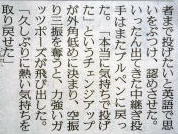 者まで投げたいと英語で思
いをぶつけ、認めさせた。
いったん出てきた中継ぎ投
手はまたブルペンに戻っ
た。「本当に気持ちで投げ
た」というチェンジアップ
が外角低めに決まり、空振
り三振を奪うと、力強いガ
ッツポーズが飛び出した。
「久しぶりに熱い気持ちを
取り戻せた」